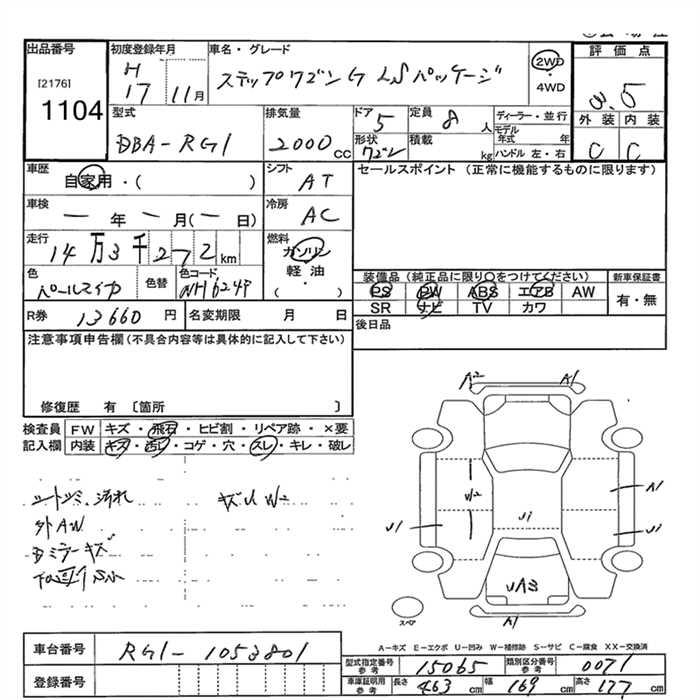 出品番号 初度登録年月 車名・グレード 評価点
[2176] 1104
H 17 11月 ステップワゴン G LSパッケージ 2WD ・ 4WD 3.5
外装 内装
C C
型式 DBA-RG1 排気量 2000cc ドア 5 定員 8人 ディーラー・並行
形状 ワゴン 積載 kg モデル年式 年 ハンドル 左・右
車歴 自家用・( ) シフト AT セールスポイント (正常に機能するものに限ります)
車検 ー年ー月(ー日) 冷房 AC
走行 14万3千272km 燃料 ガソリン 軽油・( )
色 パールホワイト 色替 色コード NH624P
装備品(純正品に限り○をつけてください) 新車保証書
PS PW ABS エアB AW 有・無
SR ナビ TV カワ
R券 13660円 名変期限 月 日 後日品
注意事項申告欄(不具合内容等は具体的に記入して下さい)
修復歴 有 〔箇所 〕
検査員 FW キズ・飛石・ヒビ割・リペア跡・×要
記入欄 内装 キズ・汚レ・コゲ・穴・スレ・キレ・破レ
汚れ キズU W2
外AW
ミラーキズ
A2 A1
W2 A1
U1 U1 U1
UA3
A1
スペア
A-キズ E-エクボ U-凹み W-補修跡 S-サビ C-腐食 XX-交換済
車台番号 RG1-1053801
登録番号
型式指定番号 参考 15065 類別区分番号 参考 0071
車庫証明用 参考 長さ 463cm 幅 169cm 高さ 177cm